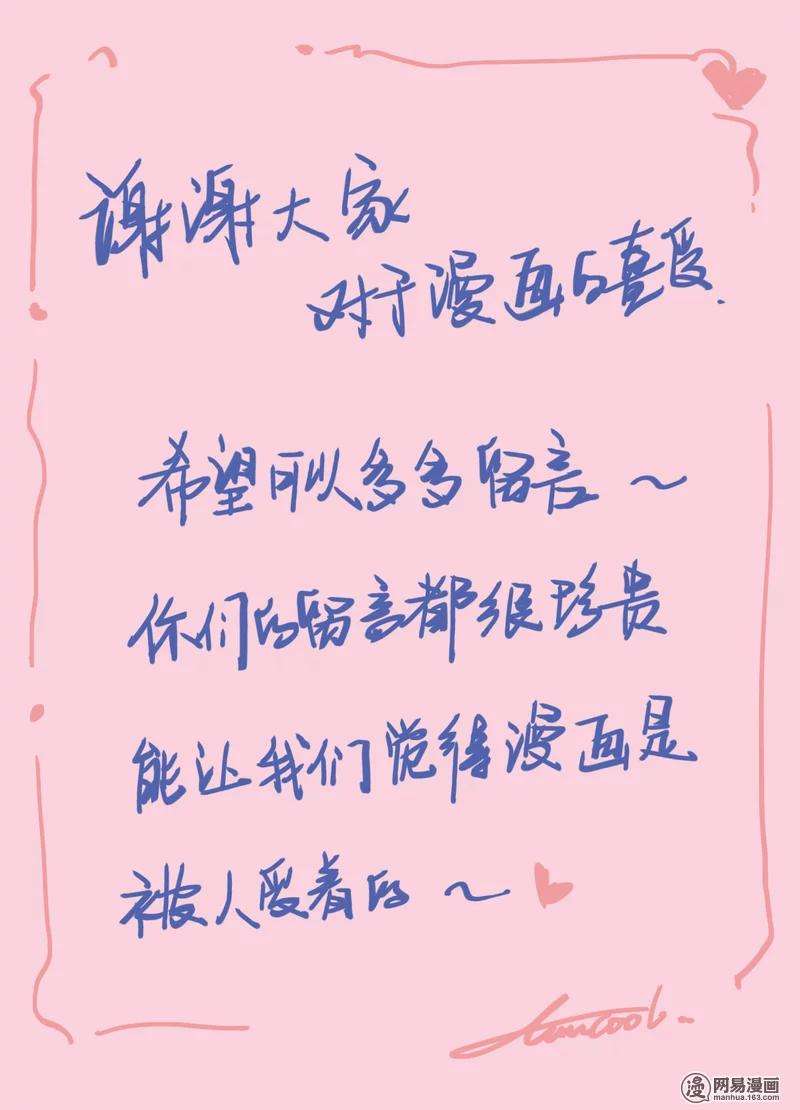 谢谢大家
对于漫画的喜爱.
希望可以多多留言～
你们的留言都很珍贵
能让我们觉得漫画是
被人爱着的～
网易漫画
manhua.163.com